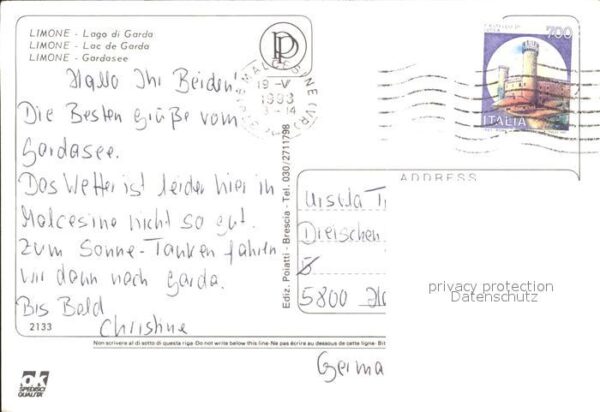 LIMONE - Lago di Garda
LIMONE - Lac de Garda
LIMONE - Gardasee
Hallo Ihr Beiden!
Die Besten Grüße vom
Gardasee.
Das Wetter ist leider hier in
Malcesine nicht so gut.
Zum Sonne-Tanken fahren
wir dann nach Garda.
Bis Bald
Christine
2133
ok
SPEDISCI
QUALITÀ
Ediz. Poiatti - Brescia - Tel. 030/2711798
MALCESINE (VR)
19 -V
1993
-14
700
ITALIA
ADDRESS
Ursula
Dreischen
5800
Germa
privacy protection
Datenschutz
Non scrivere al di sotto di questa riga-Do not write below this line-Ne pas écrire au dessous de cette ligne-